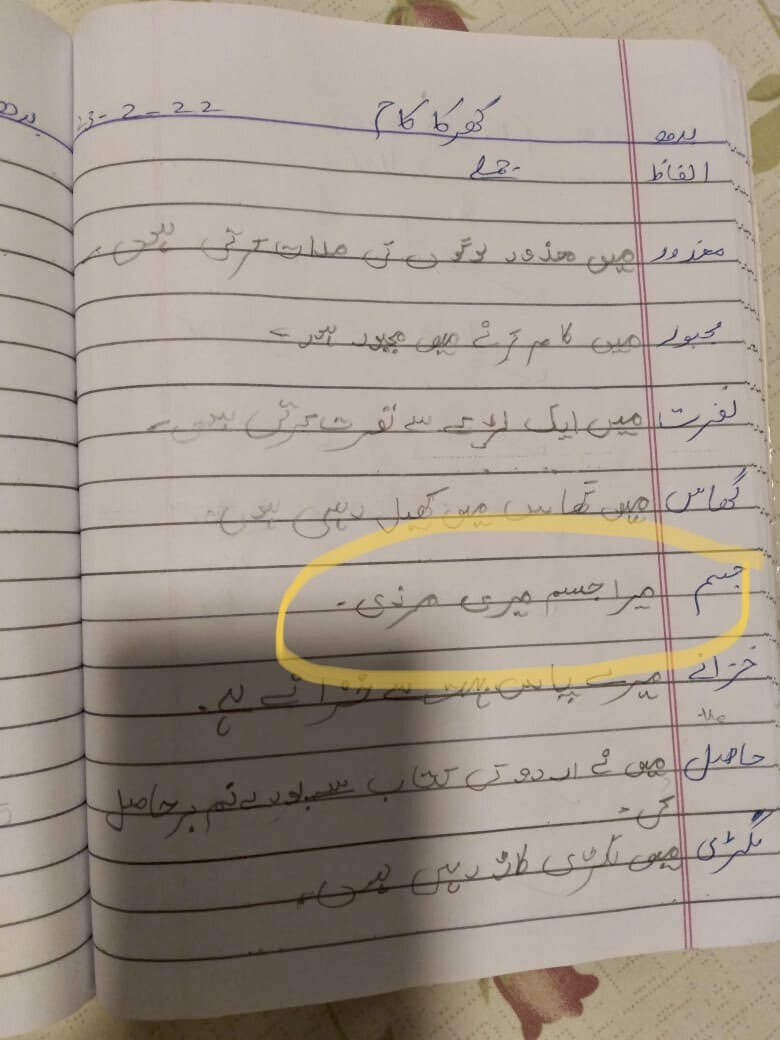 بدھ گھر کا کام 23-2-22
الفاظ جملے
معذور میں معذور لوگوں کی مدد کرتی ہوں۔
مجبور میں کام کرنے میں مجبور ہوں۔
نفرت میں ایک لڑکے سے نفرت کرتی ہوں۔
گھاس میں گھاس میں کھیل رہی ہوں۔
جسم میرا جسم میری مرزی۔
خزانے میرے پاس بہت سے خزانے ہے۔
حاصل میں نے اردو کی کتاب سے حاصل
کی۔
لکڑی میں لکڑی کاٹ رہی ہوں۔